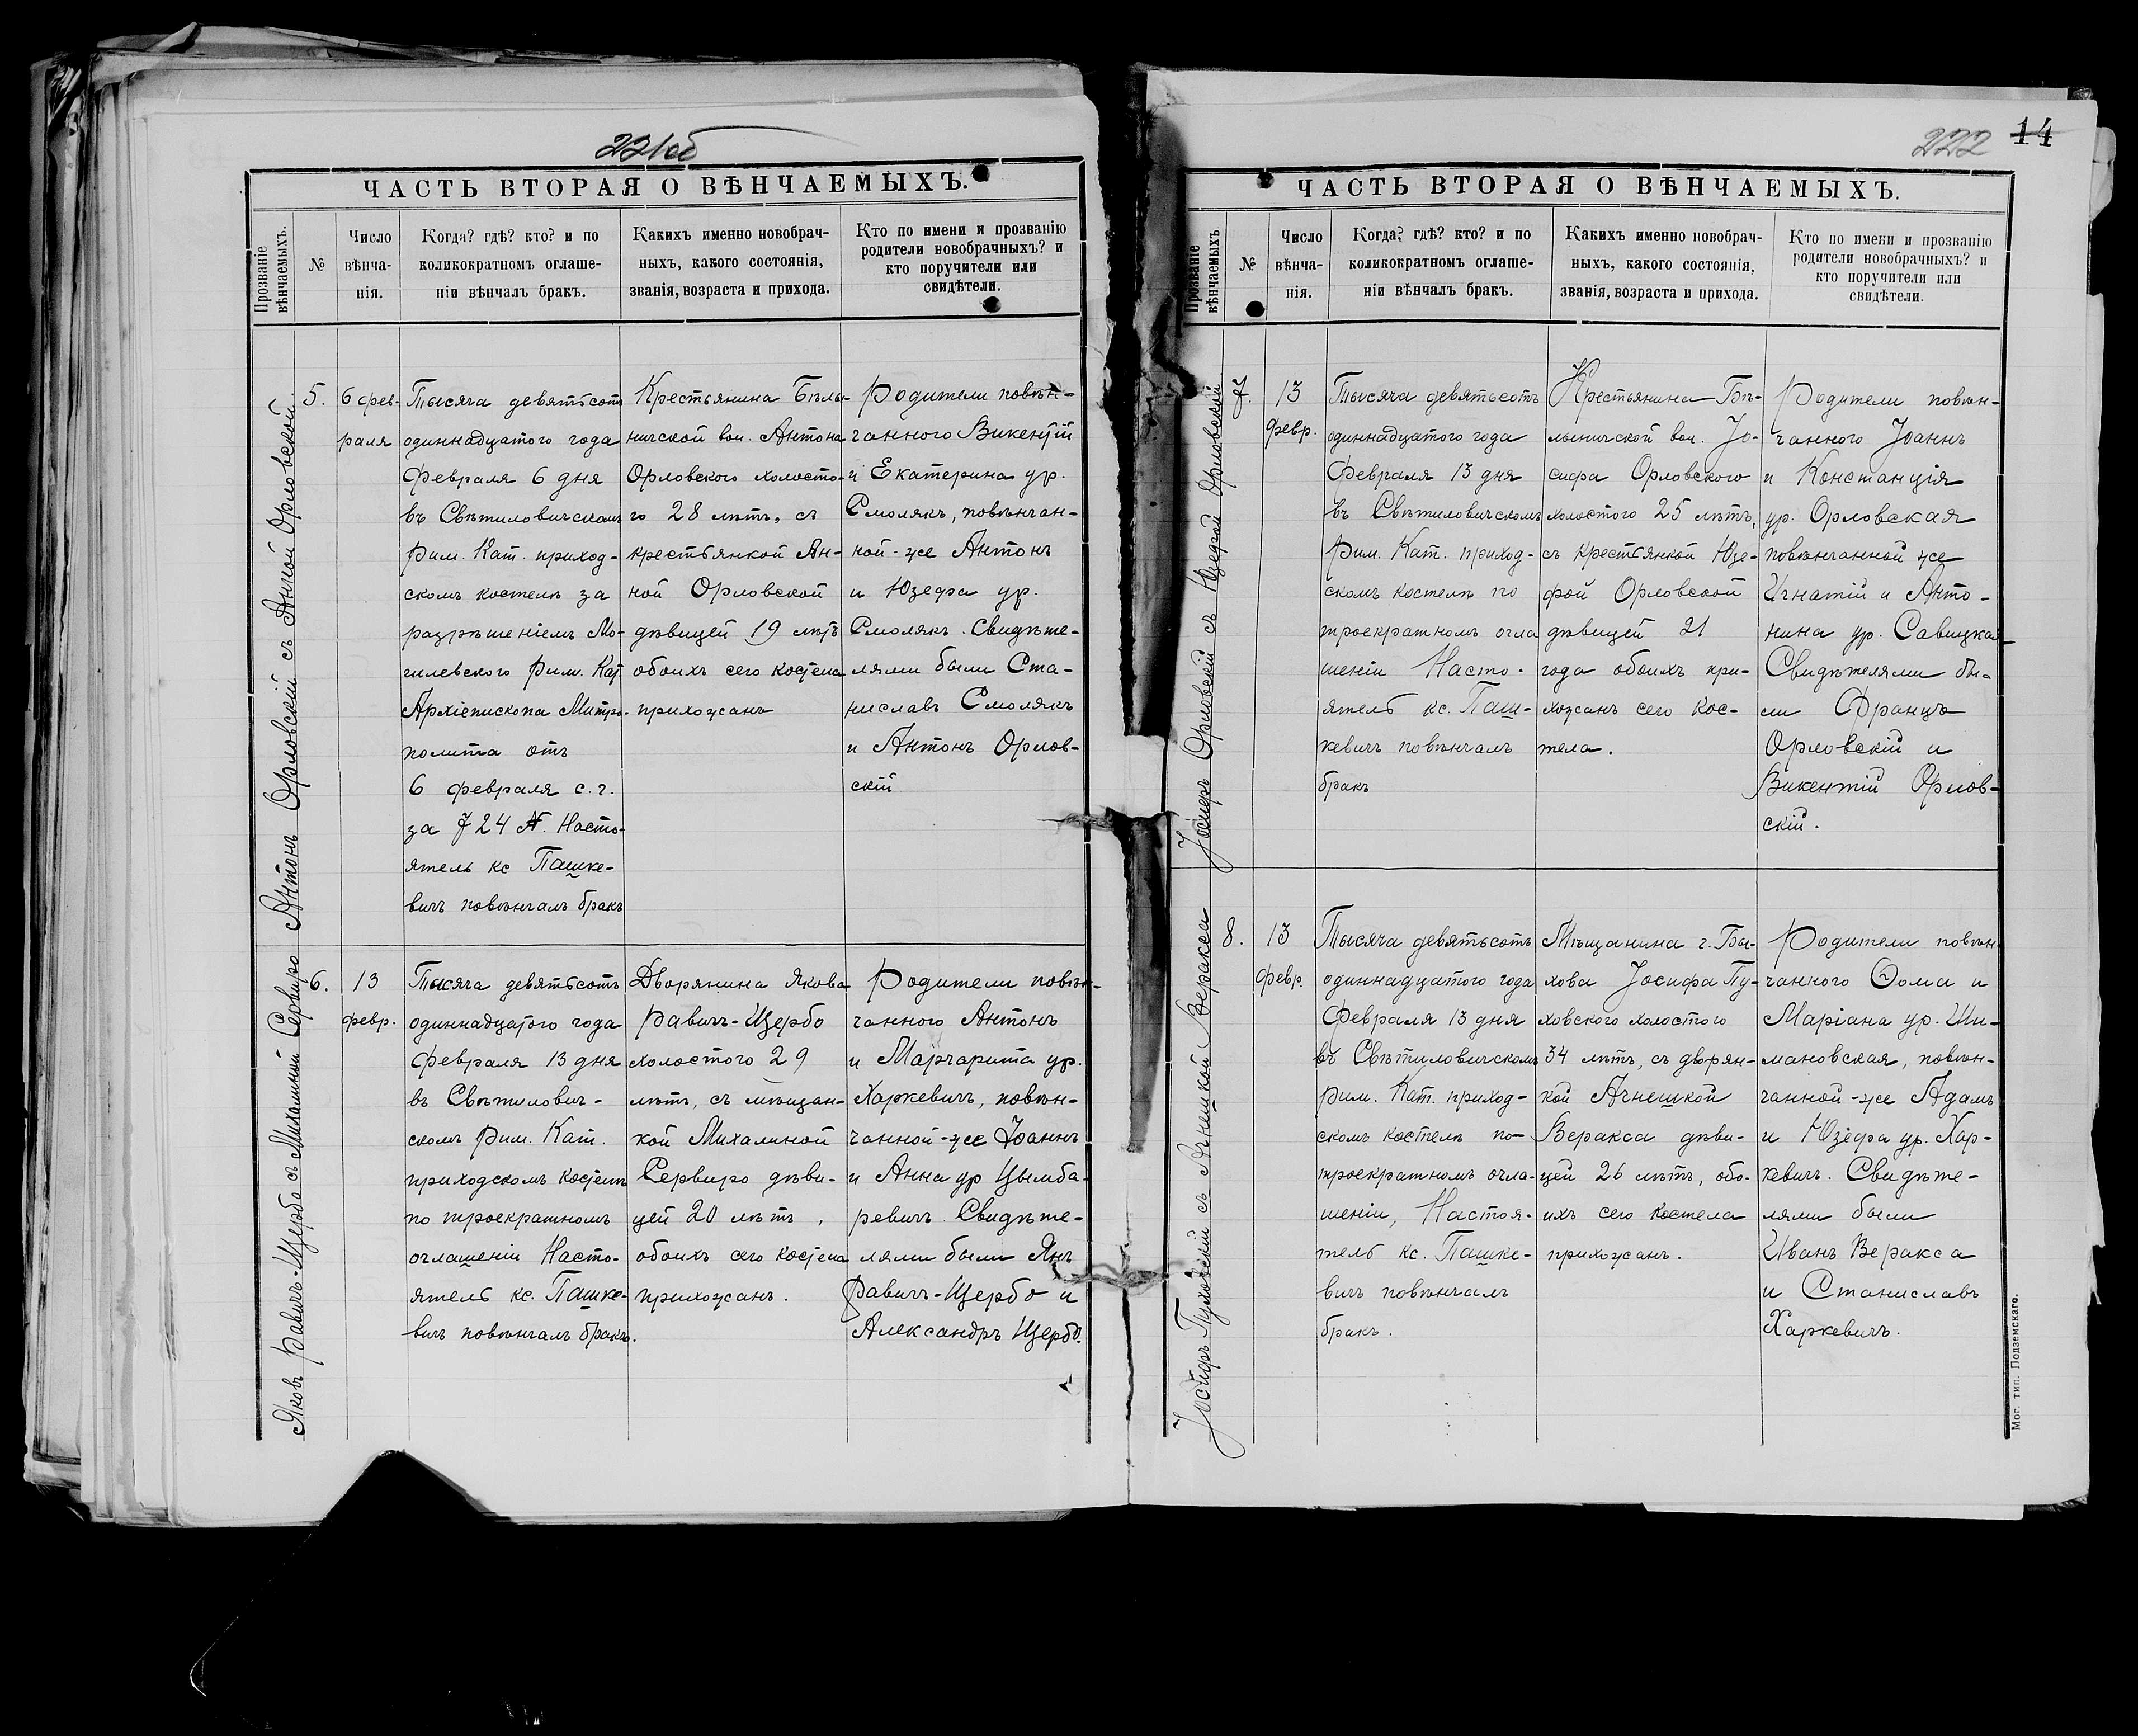 221об
ЧАСТЬ ВТОРАЯ О ВѢНЧАЕМЫХЪ.
Прозваніе
вѣнчаемыхъ.
№
Число
вѣнча-
нія.
Когда? гдѣ? кто? и по
коликократномъ оглаше-
ніи вѣнчалъ бракъ.
Какихъ именно новобрач-
ныхъ, какого состоянія,
званія, возраста и прихода.
Кто по имени и прозванію
родители новобрачныхъ? и
кто поручители или
свидѣтели.
Антонъ Орловскій съ Анной Орловской
5.
6 фев-
раля
Тысяча девятьсотъ
одиннадцатого года
Февраля 6 дня
въ Свѣтиловичскомъ
Рим. Кат. приход-
скомъ костелѣ за
разрѣшеніемъ Мо-
гилевского Рим. Кат.
Архіепископа Митро-
полита отъ
6 февраля с. г.
за 724 №. Насто-
ятель кс Пашке-
вичъ повѣнчалъ бракъ
Крестьянина Бѣлы-
ничской вол. Антона
Орловского холосто-
го 28 лѣтъ, съ
крестьянкой Ан-
ной Орловской
дѣвицей 19 лѣтъ
обоихъ сего костела
прихожанъ
Родители повѣн-
чанного Викентій
и Екатерина ур.
Смолякъ, повѣнчан-
ной-же Антонъ
и Юзефа ур.
Смолякъ. Свидѣте-
лями были Ста-
ниславъ Смолякъ
и Антонъ Орлов-
скій
Яковъ Равичъ-Щербо съ Михалиной Сервиро
6.
13
февр.
Тысяча девятьсотъ
одиннадцатого года
Февраля 13 дня
въ Свѣтилович-
скомъ Рим. Кат.
приходскомъ костелѣ
по троекратномъ
оглашеніи Насто-
ятель кс. Пашке-
вичъ повѣнчалъ бракъ.
Дворянина Якова
Равичъ-Щербо
холостого 29
лѣтъ, съ мѣщан-
кой Михалиной
Сервиро дѣви-
цей 20 лѣтъ,
обоихъ сего костела
прихожанъ.
Родители повѣн-
чанного Антонъ
и Маргарита ур.
Харкевичъ, повѣн-
чанной-же Іоаннъ
и Анна ур Цымба-
ревичъ. Свидѣте-
лями были Янъ
Равичъ-Щербо и
Александръ Щербо.
222 14
ЧАСТЬ ВТОРАЯ О ВѢНЧАЕМЫХЪ.
Прозваніе
вѣнчаемыхъ
№
Число
вѣнча-
нія.
Когда? гдѣ? кто? и по
коликократномъ оглаше-
ніи вѣнчалъ бракъ.
Какихъ именно новобрач-
ныхъ, какого состоянія,
званія, возраста и прихода.
Кто по имени и прозванію
родители новобрачныхъ? и
кто поручители или
свидѣтели.
Іосифъ Орловскій съ Юзефой Орловской
7.
13
февр.
Тысяча девятьсотъ
одиннадцатого года
Февраля 13 дня
въ Свѣтиловичскомъ
Рим. Кат. приход-
скомъ костелѣ по
троекратномъ огла
шеніи Насто-
ятель кс. Паш-
кевичъ повѣнчалъ
бракъ
Крестьянина Бѣ-
лыничской вол. Іо-
сифа Орловского
холостого 25 лѣтъ,
съ крестьянкой Юзе-
фой Орловской
дѣвицей 21
года обоихъ при-
хожанъ сего кос-
тела.
Родители повѣн-
чанного Іоаннъ
и Констанція
ур. Орловская
повѣнчанной же
Игнатій и Анто-
нина ур. Савицкая
Свидѣтелями бы-
ли Францъ
Орловскій и
Викентій Орлов-
скій.
Іосифъ Пуховскій съ Агнешкой Веракса
8.
13
февр.
Тысяча девятьсотъ
одиннадцатого года
Февраля 13 дня
въ Свѣтиловичскомъ
Рим. Кат. приход-
скомъ костелѣ по-
троекратномъ огла-
шеніи, Настоя-
тель кс. Пашке-
вичъ повѣнчалъ
бракъ.
Мѣщанина г. Бы-
хова Іосифа Пу-
ховского холостого
34 лѣтъ, съ дворян-
кой Агнешкой
Веракса дѣви-
цей 26 лѣтъ, обо-
ихъ сего костела
прихожанъ.
Родители повѣн
чанного Ѳома и
Маріана ур. Ши-
мановская, повѣн-
чанной-же Адамъ
и Юзефа ур. Хар-
кевичъ. Свидѣте-
лями были
Иванъ Веракса
и Станиславъ
Харкевичъ.
Мог. тип. Подземскаго.